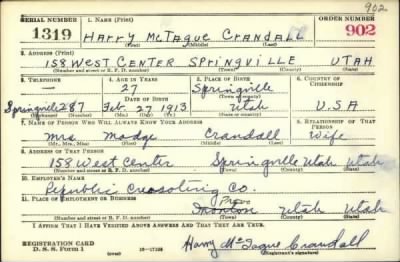 902
SERIAL NUMBER 1. NAME (Print) ORDER NUMBER
1319 HARRY McTAGUE CRANDALL 902
(First) (Middle) (Last)
2. ADDRESS (Print)
158 WEST CENTER SPRINGVILLE UTAH
(Number and street or R. F. D. number) (Town) (County) (State)
3. TELEPHONE 4. AGE IN YEARS 5. PLACE OF BIRTH 6. COUNTRY OF CITIZENSHIP
- 27 Springville
DATE OF BIRTH (Town or county)
Springville 287 Feb. 27, 1913 Utah U.S.A
(Exchange) (Number) (Mo.) (Day) (Yr.) (State or country)
7. NAME OF PERSON WHO WILL ALWAYS KNOW YOUR ADDRESS 8. RELATIONSHIP OF THAT PERSON
Mrs. Madge Crandall Wife
(Mr., Mrs., Miss) (First) (Middle) (Last)
9. ADDRESS OF THAT PERSON
158 West Center Springville Utah Utah
(Number and street or R. F. D. number) (Town) (County) (State)
10. EMPLOYER'S NAME
Republic Creosoting Co.
11. PLACE OF EMPLOYMENT OR BUSINESS
Provo
Ironton Utah Utah
(Number and street or R. F. D. number) (Town) (County) (State)
I AFFIRM THAT I HAVE VERIFIED ABOVE ANSWERS AND THAT THEY ARE TRUE.
REGISTRATION CARD
D. S. S. FORM 1 (over) Harry McTague Crandall
(Registrant's signature)